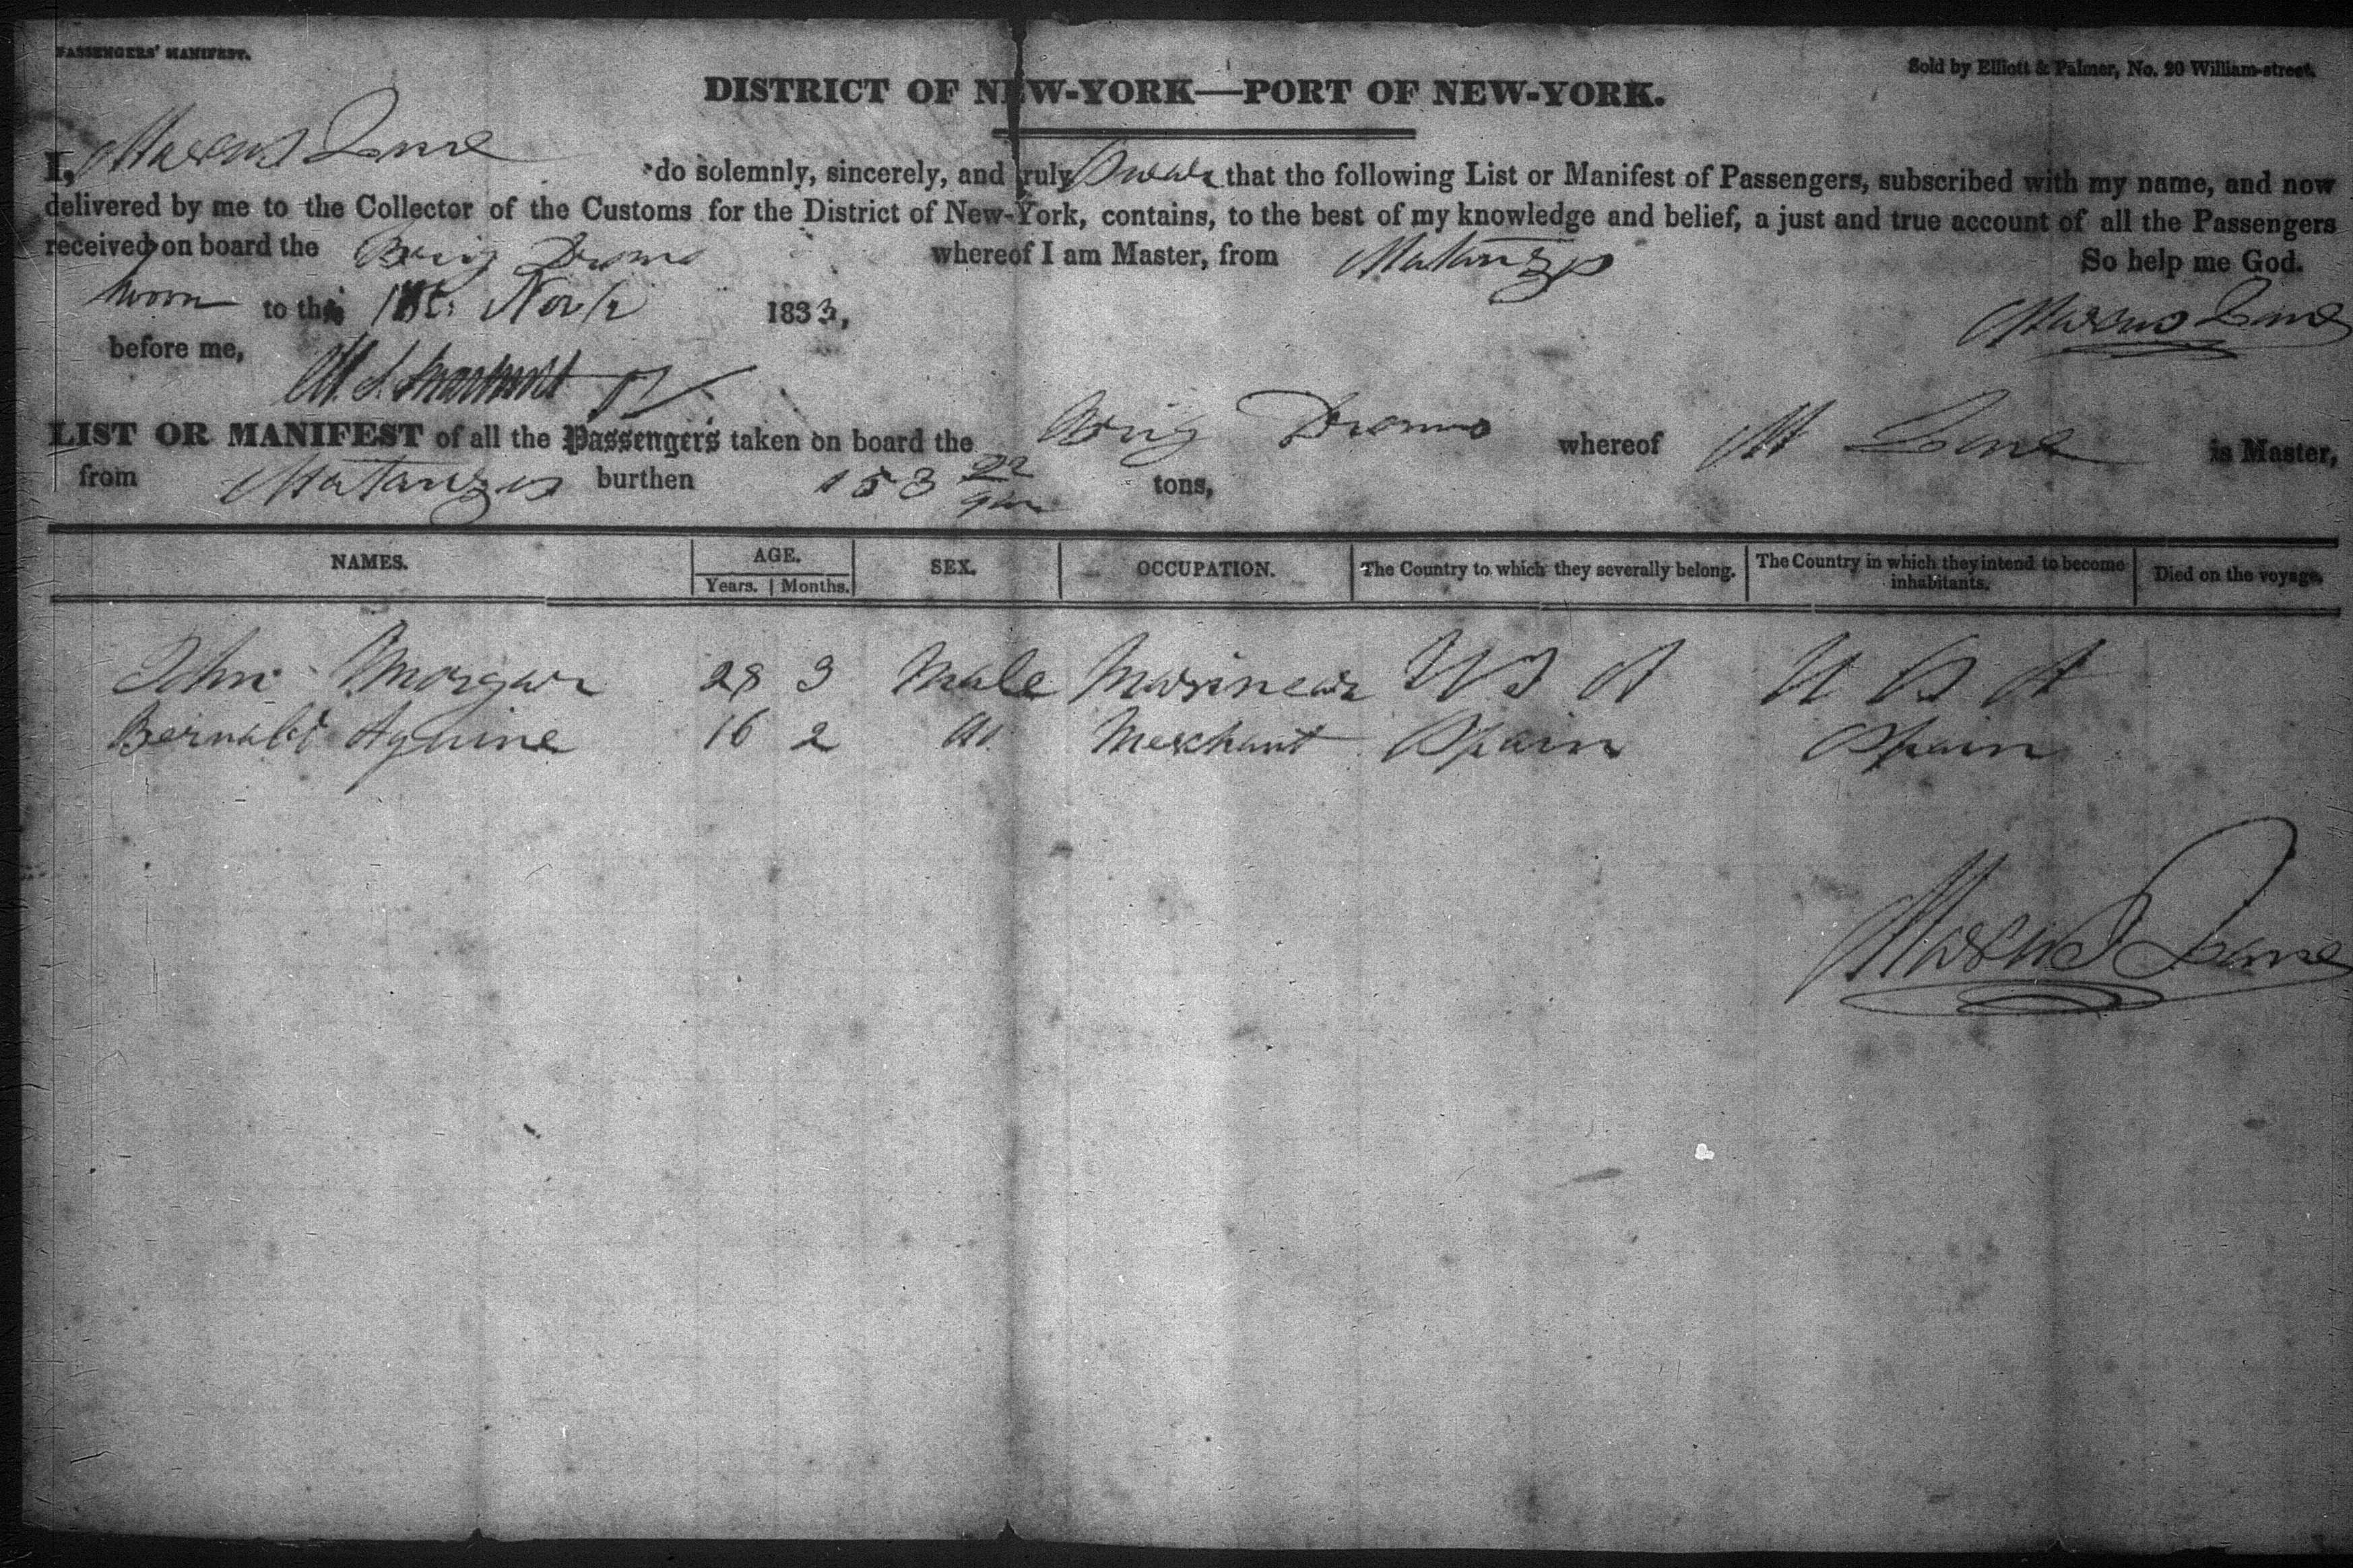 PASSENGERS' MANIFEST.
Sold by Elliott & Palmer, No. 20 William-street.
DISTRICT OF NEW-YORK—PORT OF NEW-YORK.
I, Marcus Lane do solemnly, sincerely, and truly Swear that the following List or Manifest of Passengers, subscribed with my name, and now
delivered by me to the Collector of the Customs for the District of New-York, contains, to the best of my knowledge and belief, a just and true account of all the Passengers
received on board the Brig Dromo whereof I am Master, from Matanzas So help me God.
Sworn to the Novr 1833,
Marcus Lane
before me,
LIST OR MANIFEST of all the Passengers taken on board the Brig Dromo whereof M Lane is Master,
from Matanzas burthen 158 22 tons,
NAMES. AGE. SEX. OCCUPATION. The Country to which they severally belong. The Country in which they intend to become inhabitants. Died on the voyage.
Years. Months.
John Morgan 28 3 Male Marinear U S A U S A
Bernabt Aguine 16 2 M. Merchant Spain Spain
Marcus Lane